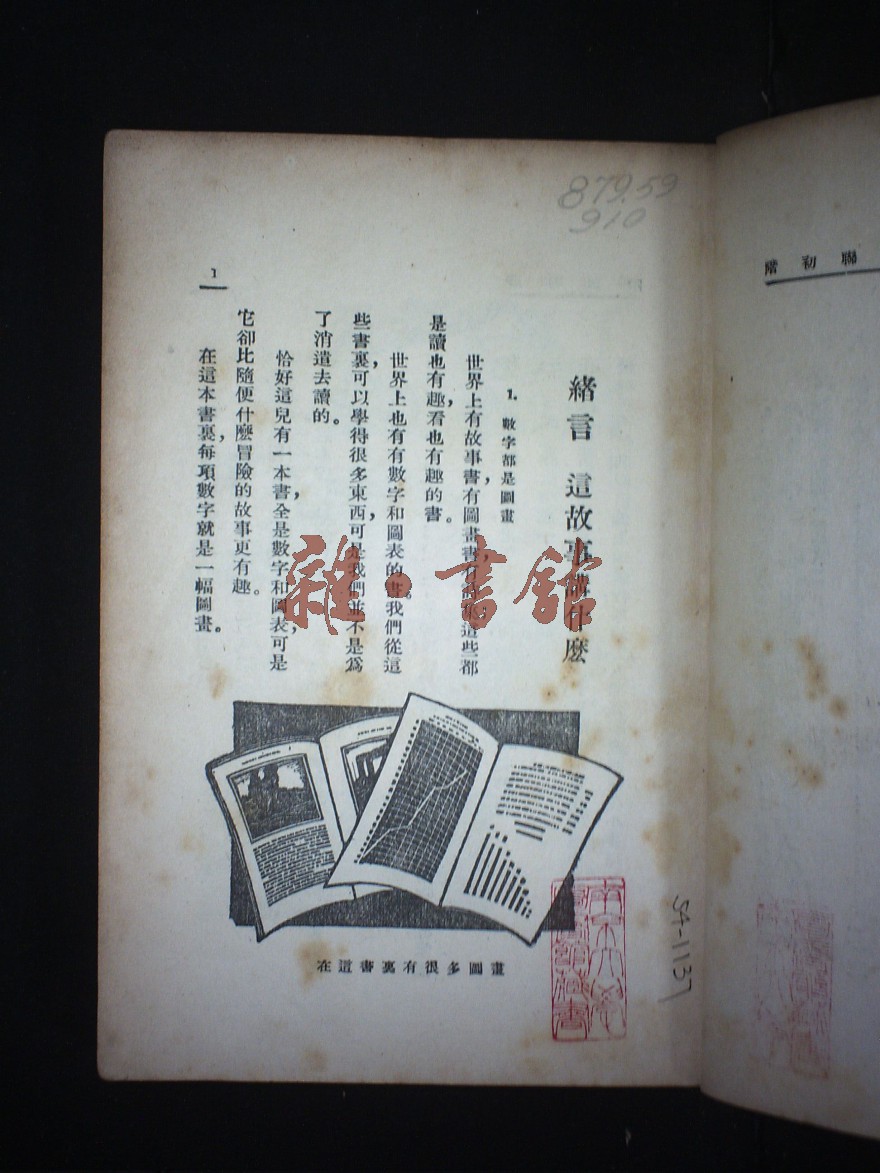 聯初階
879.59
910
緒言 這故事講什麼
1. 數字都是圖畫
世界上有故事書，有圖畫書，有這些都
是讀也有趣看也有趣的書。
世界上也有有數字和圖表的書。我們從這
些書裏，可以學得很多東西，可是我們並不是爲
了消遣去讀的。
恰好這兒有一本書，全是數字和圖表，可是
它卻比隨便什麼冒險的故事更有趣。
在這本書裏，每項數字就是一幅圖畫。
1
在這書裏有很多圖畫
南京大學
圖書館藏書
雜·書館